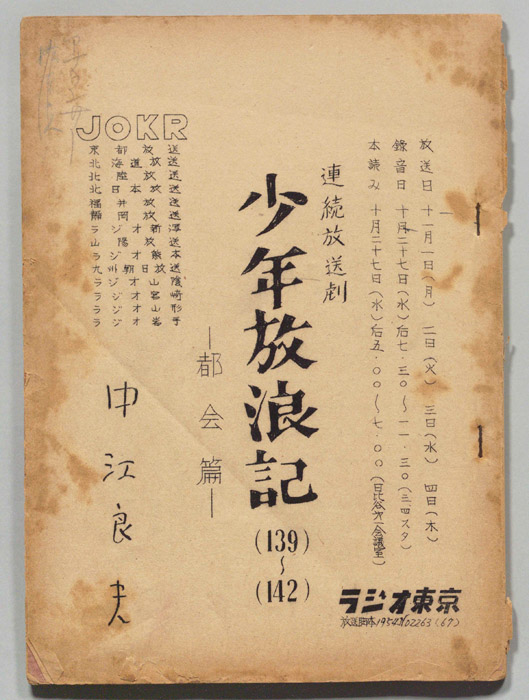 放送日 十一月一日(月) 二日(火) 三日(水) 四日(木)
録音日 十月二十七日(水)后七・三〇〜一一・三〇(三、四スタ)
本読み 十月二十七日(水)后五・〇〇〜七・〇〇(日比谷第一会議室)
連続放送劇
少年放浪記
(139)
〜
(142)
―都会篇―
JOKR
京都放送
北海道放送
北陸放送
北日本放送
福井放送
静岡放送
ラジオ新潟
山陽放送
ラジオ熊本
九州朝日放送
ラジオ山陰
ラジオ宮崎
ラジオ山形
ラジオ岩手
中江良夫
ラジオ東京